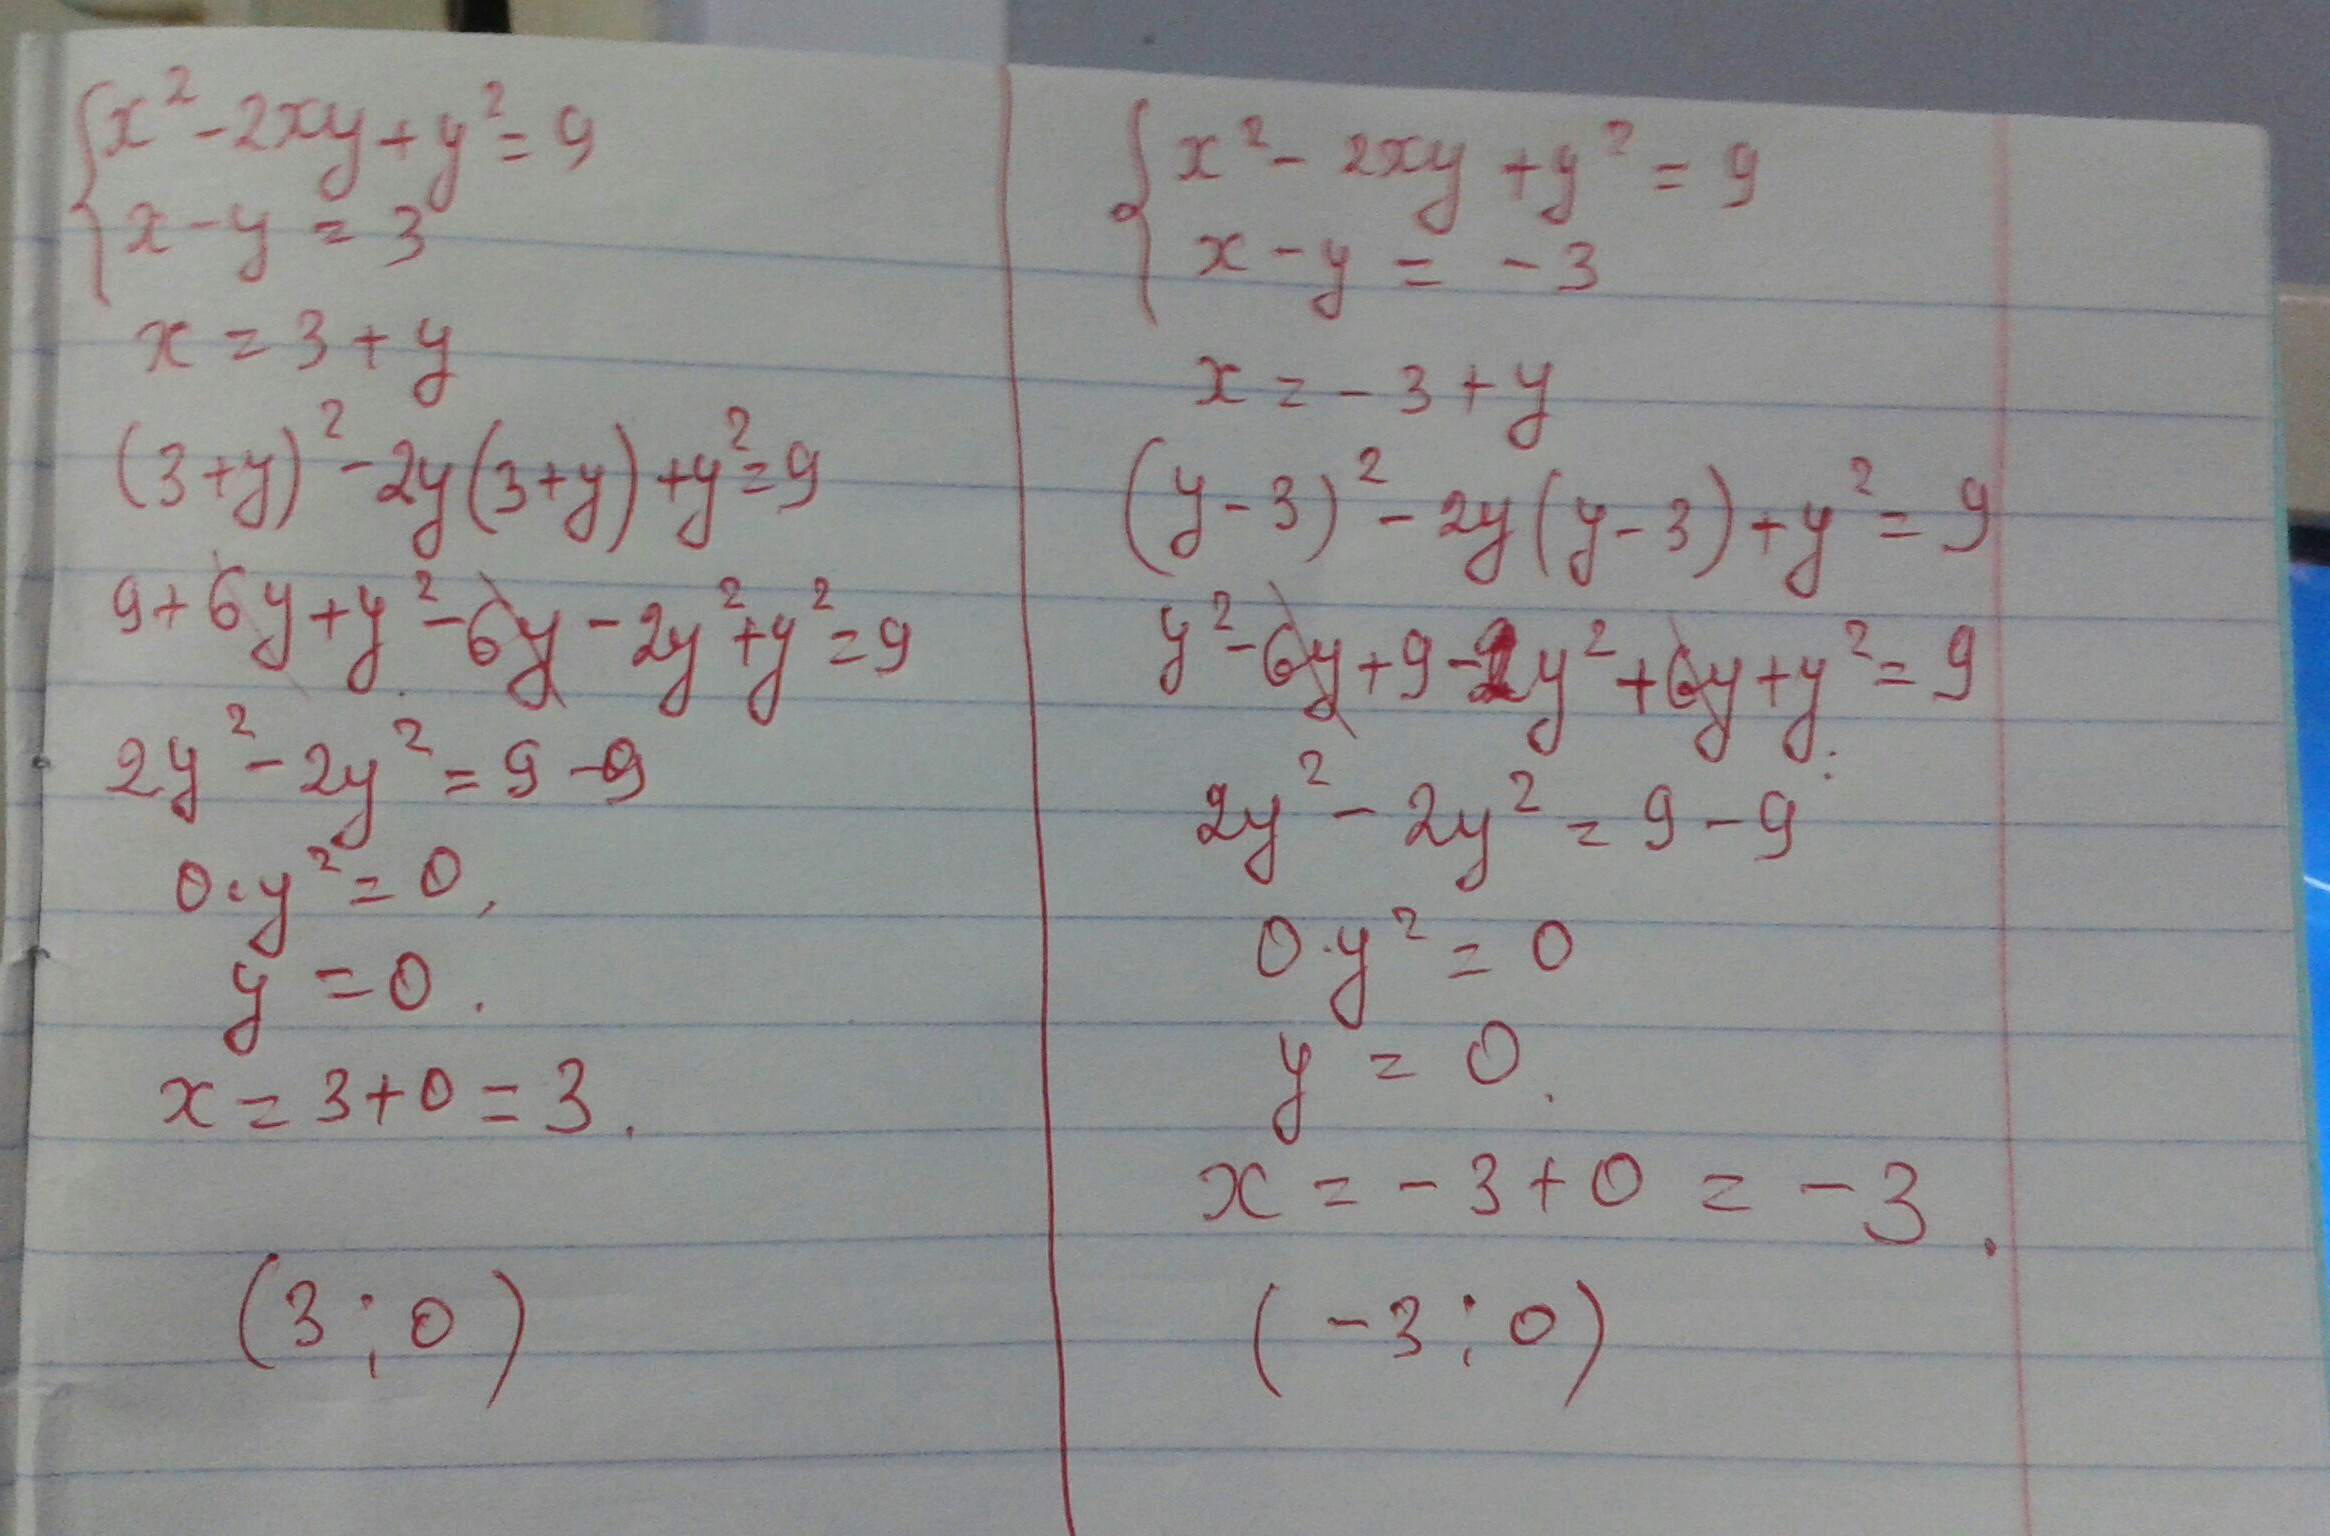 x² - 2xy + y² = 9
x - y = 3
x = 3 + y
(3 + y)² - 2y(3 + y) + y² = 9
9 + 6y + y² - 6y - 2y² + y² = 9
2y² - 2y² = 9 - 9
0 · y² = 0,
y = 0.
x = 3 + 0 = 3.
(3; 0)
x² - 2xy + y² = 9
x - y = -3
x = -3 + y
(y - 3)² - 2y(y - 3) + y² = 9
y² - 6y + 9 - 2y² + 6y + y² = 9
2y² - 2y² = 9 - 9
0 · y² = 0
y = 0.
x = -3 + 0 = -3.
(-3; 0)